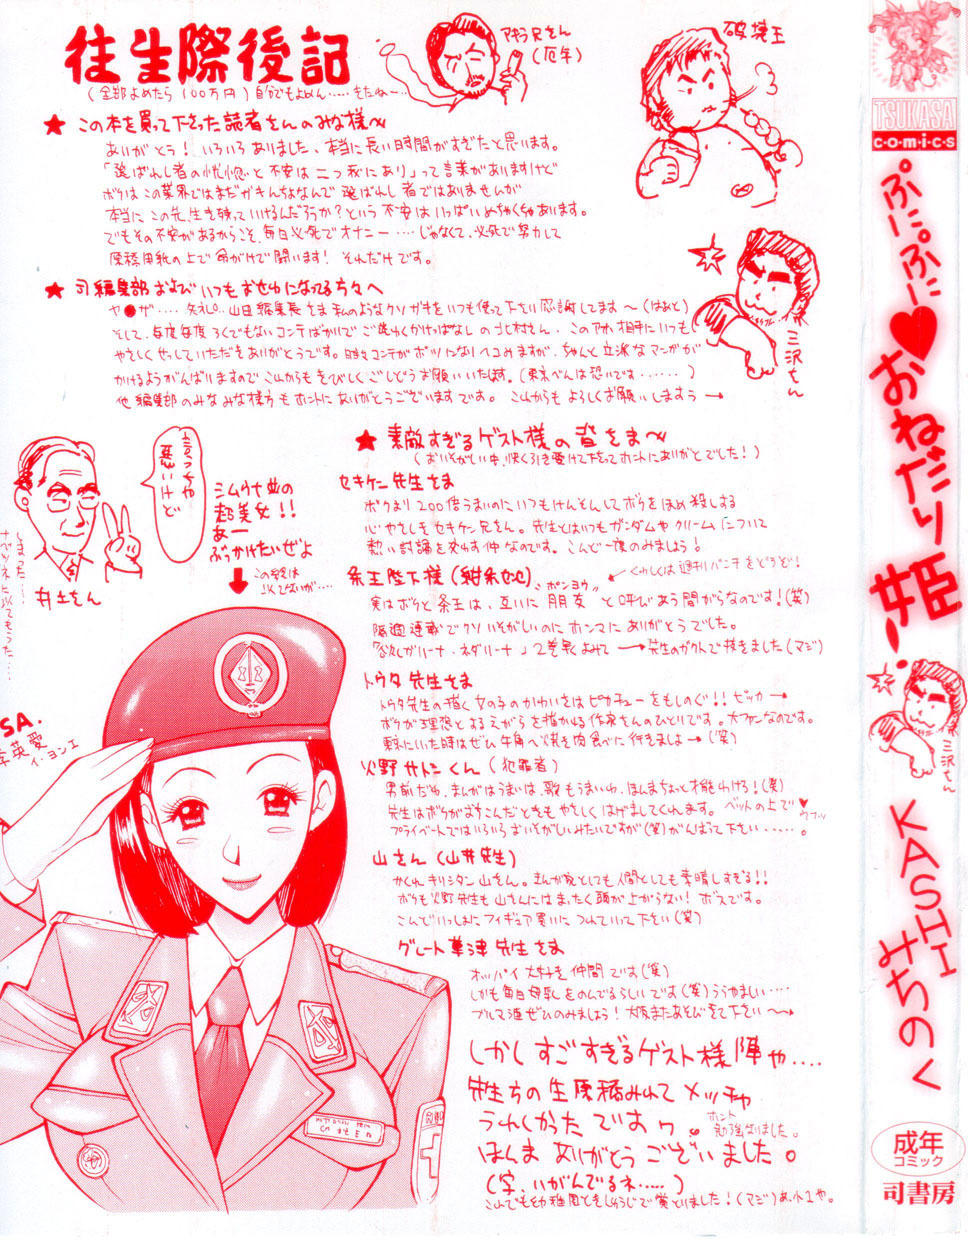 往生際後記
(全部よめたら100万円)自分でもよめん……きたねー…
アキラ兄さん
(厄年)
破壊王
★この本を買って下さった読者さんのみな様へ
ありがとう!いろいろありました、本当に長い時間がすぎたと思います。
「選ばれし者の恍惚と不安は二つ我にあり」って言葉がありますけど
ボクはこの業界ではまだガキんちょなんで選ばれし者ではありませんが
本当にこの先、生き残っていけるんだろうか?という不安はいっぱいめちゃくちゃあります。
でもその不安があるからこそ、毎日必死でオナニー……じゃなくて、必死で努力して
原稿用紙の上で命がけで闘います!それだけです。
★司編集部およびいつもおせわになってる方々へ
ヤ●ザ……失礼。山田編集長さま私のようなクソガキをいつも使って下さい感謝してます〜(はぁと)
そして、毎度毎度ろくでもないコンテばかりでご迷わくかけっぱなしの
このアホ相手にいつも
やさしくせっしていただきありがとうです。時々コンテがボツになりヘコみますが、ちゃんと立派なマンガが
かけるようがんばりますのでこれからもきびしくごしどうお願いいたします。(東京べんは恐いです……)
他編集部のみなみな様方もホントにありがとうございますです。これからもよろしくお願いしますぅ→
三沢さん
★素敵すぎるゲスト様の皆さま〜
(おいそがしい中、快く引き受けて下さってホントにありがとでした!)
セキケン先生さま
ボクより200倍うまいのにいつもけんそんしてボクをほめ殺しする
心やさしきセキケン兄さん。先生とはいつもガンダムやクリームについて
熱い討論を交わす仲なのです。こんど一度のみましょう!
条王陛下様(紺条せせ)
くわしくは週刊パンチをどうぞ!
実はボクと条王は、互いに朋友と呼びあう間がらなのです!(笑)
ポンヨウ
隔週連載でクソいそがしいのにホンマにありがとうでした。
「欲しがリーナ・ネダリーナ」2巻早くよみて→先生のガクトで抜きました(マジ)
トウタ先生さま
トウタ先生の描く女の子のかわいさはピカチューをもしのぐ!!ピッカー→
ボクが理想とよるえがらを描かれる作家さんのひとりです。大ファンなのです。
東京にいた時はぜひ牛角へ焼き肉食べに行きましょ→(笑)
火野サトシくん(犯罪者)
男前だわ、まんがはうまいは、歌もうまいわ、ほんまちょっと才能わけろ!(笑)
先生はボクがおちこんだときもやさしくはげましてくれます。ベットの上で♥
プライベートではいろいろおいそがしいみたいですが(笑)がんばって下さい……。
山さん(山井先生)
かくれキリシタン山さん。まんが家としても人間としても素晴しすぎる!!
ボクも火野先生も山さんにはまったく頭が上がらない!ボスです。
こんどいっしょにフィギュア買いにつれていって下さい(笑)
グレート草津先生さま
オッパイ大好き仲間です(笑)
しかも毎日母乳をのんでるらしいです(笑)うらやましい…
ブルマ酒ぜひのみましょう!大阪またあそびきて下さい〜→
しかしすごすぎるゲスト様陣や…
先生ちの生原稿みれてメッチャ
うれしかったですゥ。
ホント
勉強なりました。
ほんまありがとうございました。
(字、いがんでるネ……)
こんでも幼稚園ときしゅうじで賞とりました!(マジ)あ、小1や。
言っちゃ
悪いけど
井上さん
シムラナ並の
超美女!!
あー
ぶっかけたいぜよ
この絵は
JKでないが…
SA.
李英愛
イ・ヨンエ
TSUKASA
c・o・m・i・c・s
ぷにぷに♥おねだり姫!
三沢さん
KASHIみちのく
成年
コミック
司書房